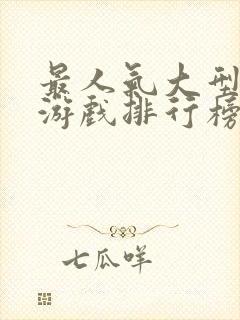 最人氣大型
游戲排行榜
七瓜咩